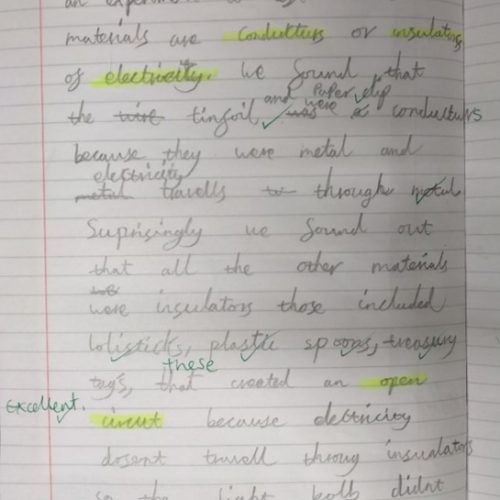 an experiment to
materials are conductors or insulators
of electricity. We found that
and Paper clip
the wire tinfoil was were a conductors
because they were metal and
electricity
metal travells to through metal
Suprisingly we found out
that all the other materials
were insulators those included
lolisticks, plastic spoons, treasury
these
tags, that created an open
Excellent. circut because electricity
dosent travell throug insulators
so the light bulb didnt